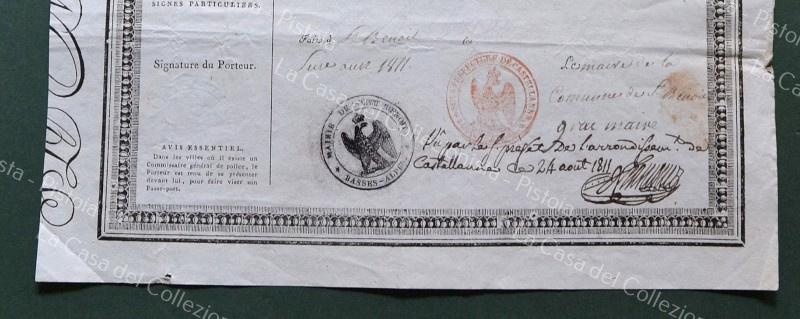 SIGNES PARTICULIERS.
Signature du Porteur.
AVIS ESSENTIEL.
Dans les villes où il existe un
Commissaire général de police, le
Porteur est tenu de se présenter
devant lui, pour faire viser son
Passe-port.
Faites à St Benoit le
août 1811
MAIRIE DE SAINT BENOIT
* BASSES-ALPES *
SOUS-PREFECTURE DE CASTELLANNE
Le maire de la
Commune de St Benoit
maire
Vu par le s. préfet De l'arrondissement de
Castellanne le 24 août 1811
La Casa del Collezionista - Pistoia